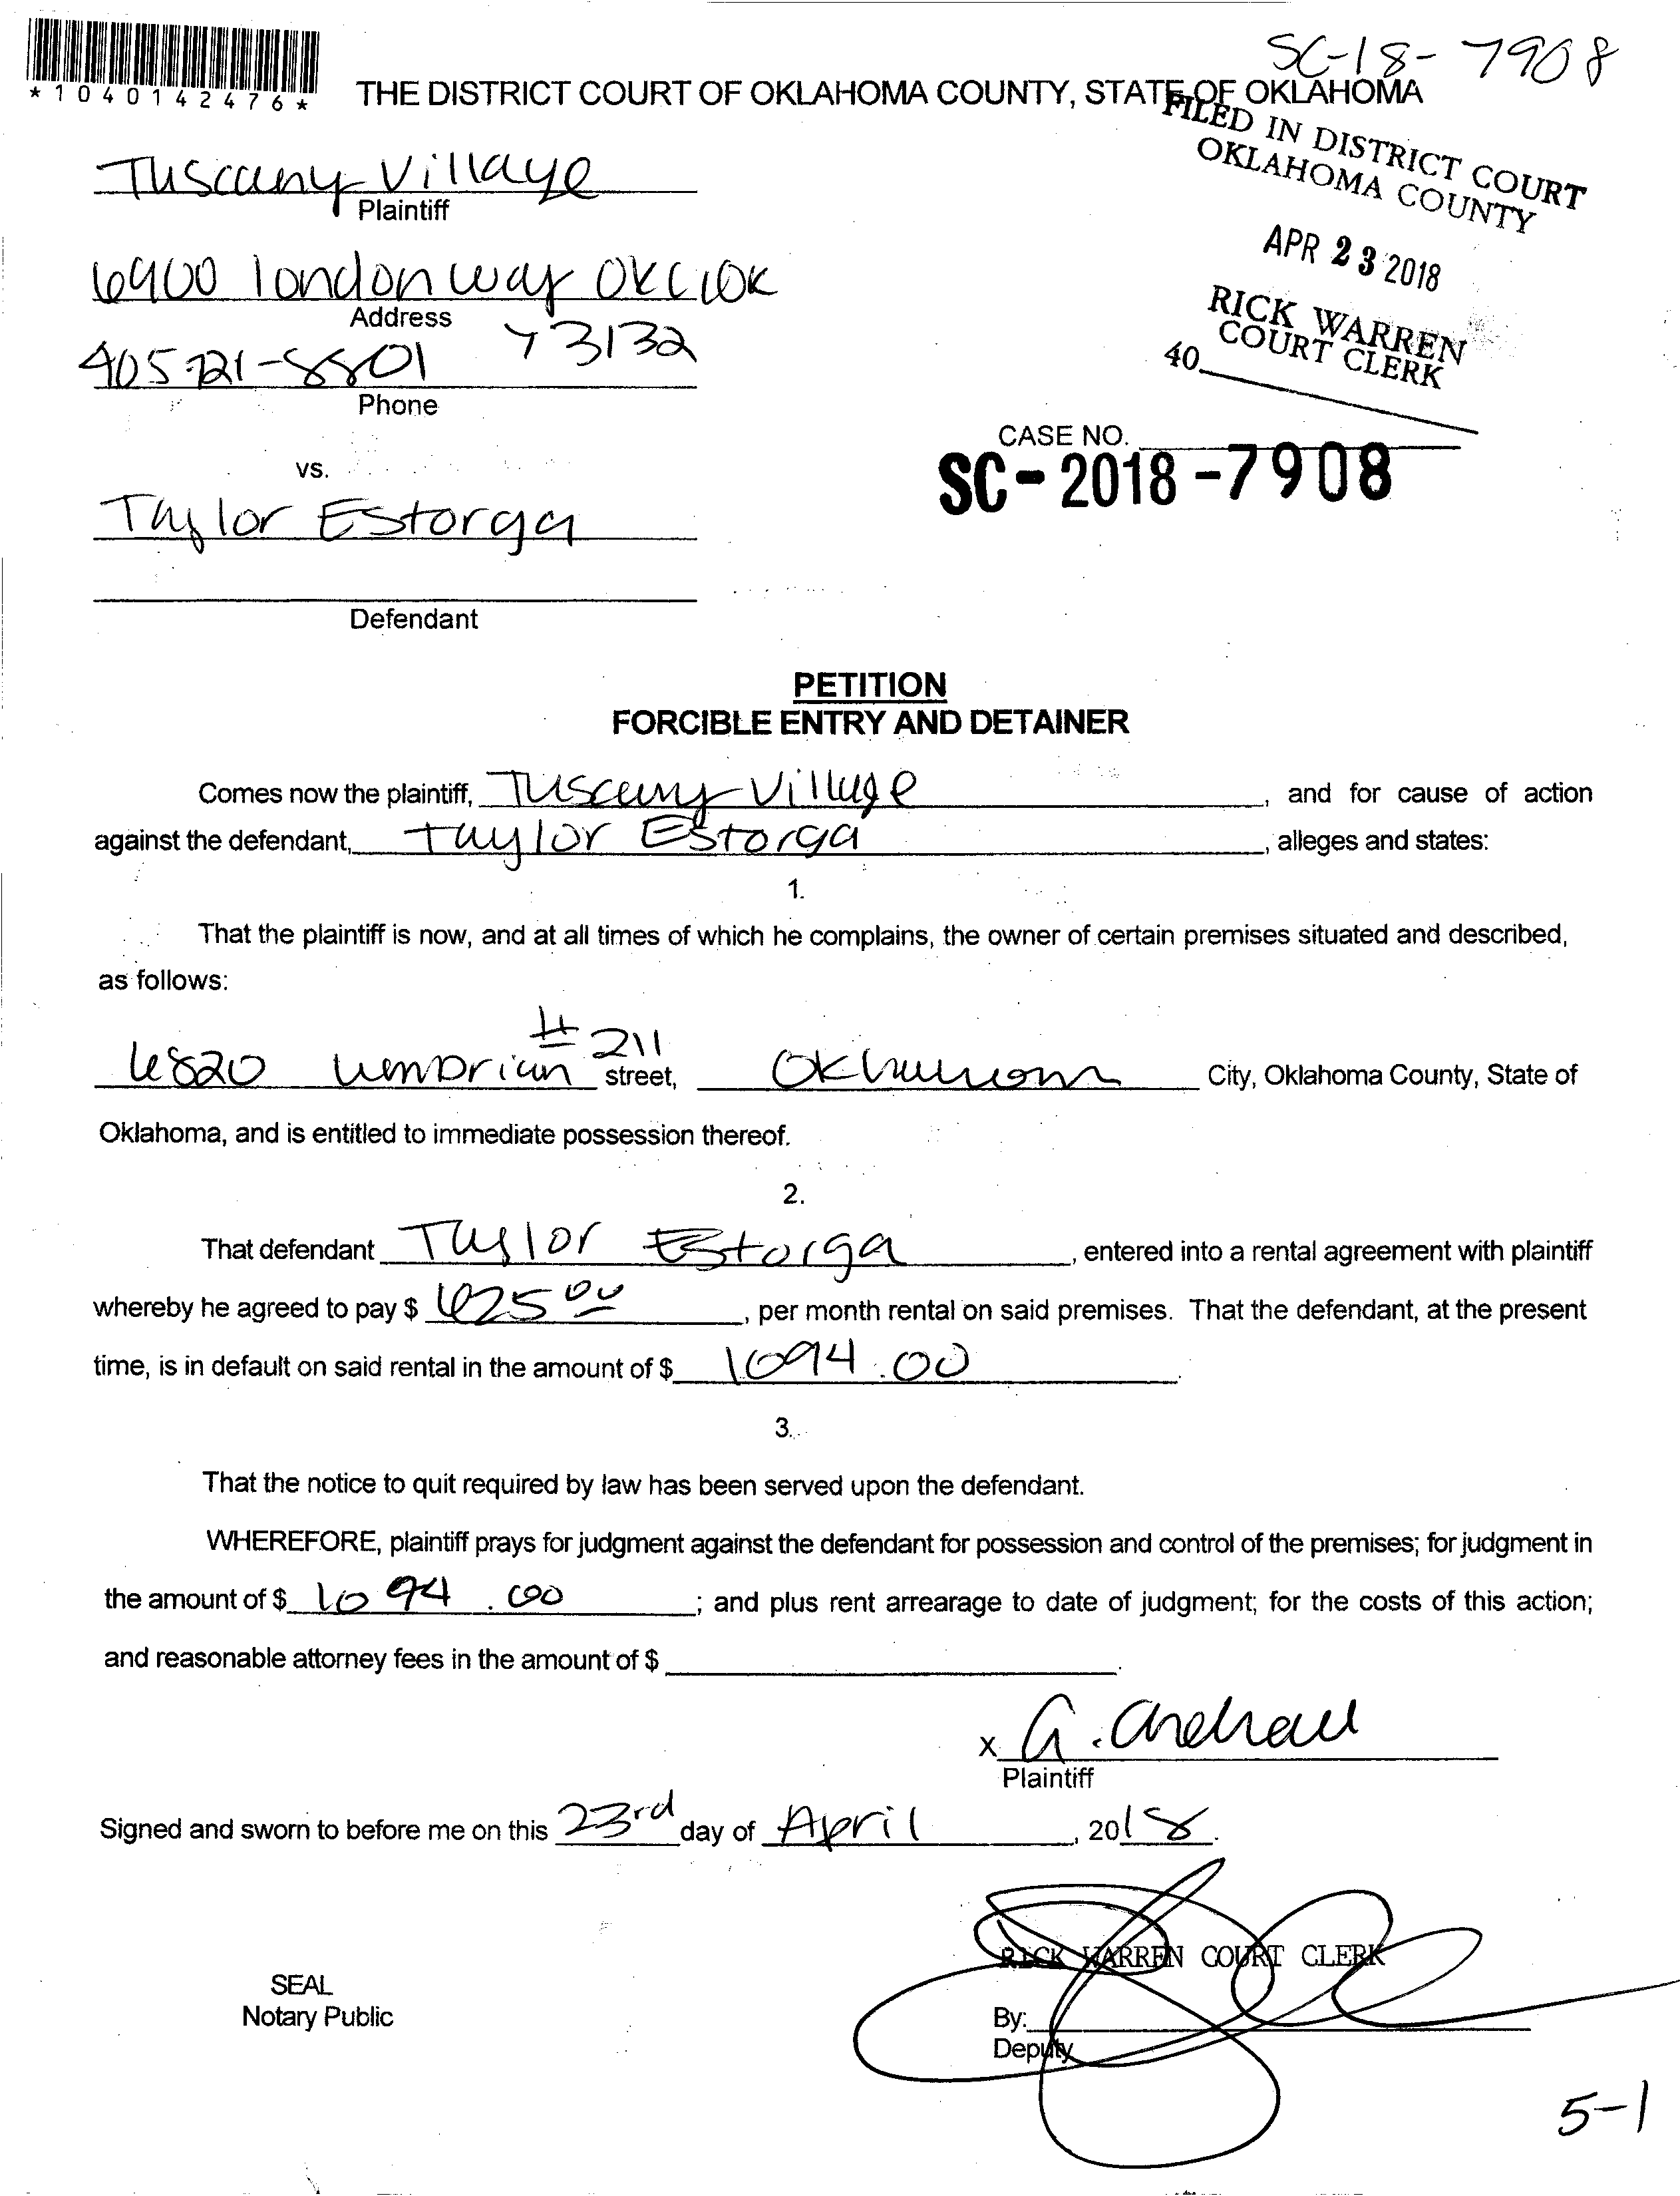 SC-18-7908
*1040142476*
THE DISTRICT COURT OF OKLAHOMA COUNTY, STATE OF OKLAHOMA
FILED IN DISTRICT COURT
OKLAHOMA COUNTY
Tuscany Village
Plaintiff
APR 23 2018
6900 london way OKC, OK
Address
73132
RICK WARREN
COURT CLERK
40
405 721-8801
Phone
CASE NO.
SC-2018-7908
vs.
Taylor Estorga
Defendant
PETITION
FORCIBLE ENTRY AND DETAINER
Comes now the plaintiff, Tuscany Village, and for cause of action
against the defendant, Taylor Estorga, alleges and states:
1.
That the plaintiff is now, and at all times of which he complains, the owner of certain premises situated and described,
as follows:
#211
6820 Umbrian street, Oklahoma City, Oklahoma County, State of
Oklahoma, and is entitled to immediate possession thereof.
2.
That defendant Taylor Estorga, entered into a rental agreement with plaintiff
whereby he agreed to pay $ 625 00, per month rental on said premises. That the defendant, at the present
time, is in default on said rental in the amount of $ 1094.00.
3.
That the notice to quit required by law has been served upon the defendant.
WHEREFORE, plaintiff prays for judgment against the defendant for possession and control of the premises; for judgment in
the amount of $ 1094.00; and plus rent arrearage to date of judgment; for the costs of this action;
and reasonable attorney fees in the amount of $
X
Plaintiff
Signed and sworn to before me on this 23rd day of April, 2018.
RICK WARREN COURT CLERK
SEAL
Notary Public
By:
Deputy
5-1